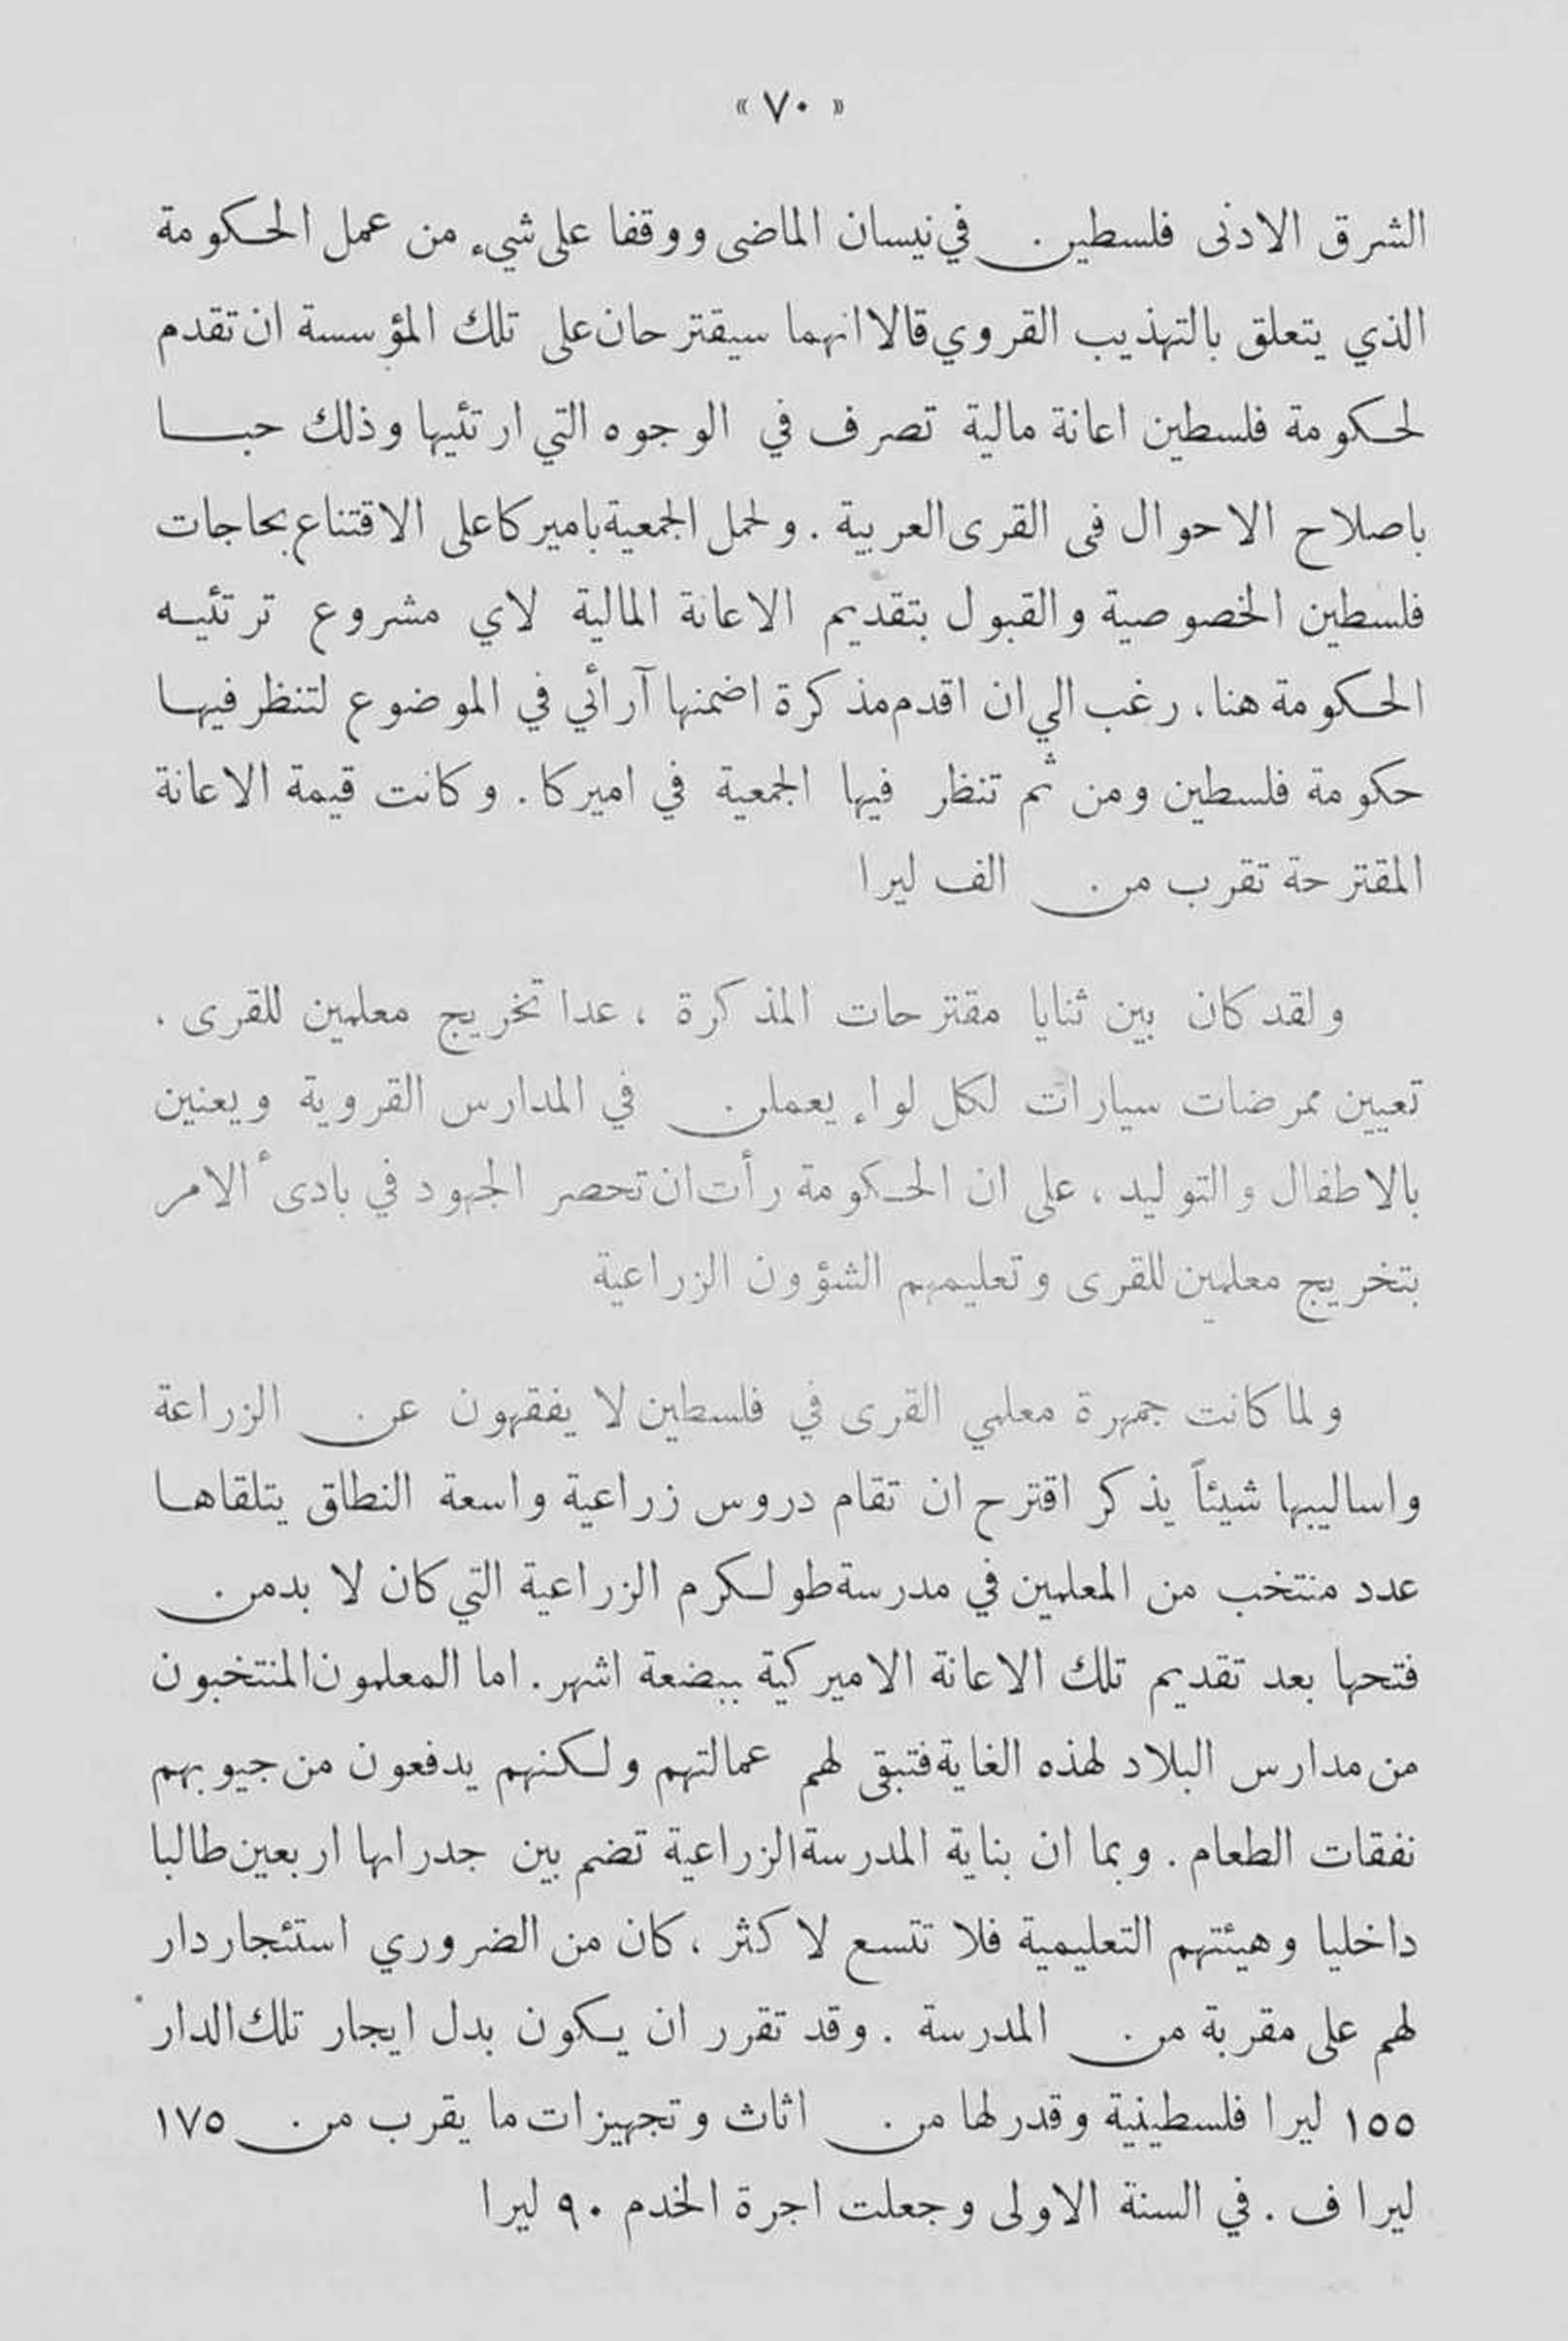 « ٧٠ »
الشرق الادنى فلسطين في نيسان الماضى ووقفا على شيء من عمل الحكومة
الذي يتعلق بالتهذيب القروي قالا انهما سيقترحان على تلك المؤسسة ان تقدم
لحكومة فلسطين اعانة مالية تصرف في الوجوه التي ارتئيها وذلك حبا
باصلاح الاحوال فى القرى العربية . ولحمل الجمعية باميركا على الاقتناع بحاجات
فلسطين الخصوصية والقبول بتقديم الاعانة المالية لاي مشروع ترتئيه
الحكومة هنا . رغب الي ان اقدم مذكرة اضمنها آرائي في الموضوع لتنظر فيها
حكومة فلسطين ومن ثم تنظر فيها الجمعية في اميركا . وكانت قيمة الاعانة
المقترحة تقرب من الف ليرا
ولقد كان بين ثنايا مقترحات المذكرة ، عدا تخريج معلمين للقرى .
تعيين ممرضات سيارات لكل لواء يعملن في المدارس القروية ويعنين
بالاطفال والتوليد ، على ان الحكومة رأت ان تحصر الجهود في بادىء الامر
بتخريج معلمين للقرى وتعليمهم الشؤون الزراعية
ولما كانت جمهرة معلمي القرى في فلسطين لا يفقهون عن الزراعة
واساليبها شيئاً يذكر اقترح ان تقام دروس زراعية واسعة النطاق يتلقاها
عدد منتخب من المعلمين في مدرسة طولكرم الزراعية التي كان لا بد من
فتحها بعد تقديم تلك الاعانة الاميركية ببضعة اشهر . اما المعلمون المنتخبون
من مدارس البلاد لهذه الغاية فتبقى لهم عمالتهم ولكنهم يدفعون من جيوبهم
نفقات الطعام . وبما ان بناية المدرسة الزراعية تضم بين جدرانها اربعين طالبا
داخليا وهيئتهم التعليمية فلا تتسع لاكثر ، كان من الضروري استئجار دار
لهم على مقربة من المدرسة . وقد تقرر ان يكون بدل ايجار تلك الدار
١٥٥ ليرا فلسطينية وقدر لها من اثاث وتجهيزات ما يقرب من ١٧٥
ليرا ف . في السنة الاولى وجعلت اجرة الخدم ٩٠ ليرا